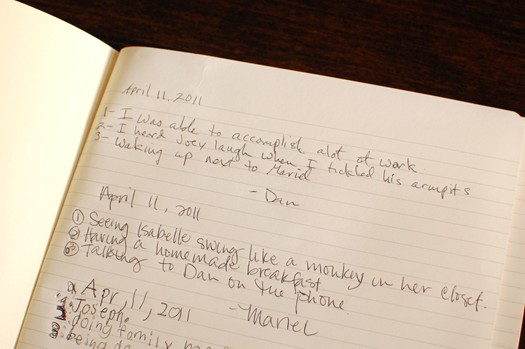 April 11, 2011
1- I was able to accomplish alot at work
2- I heard Joey laugh when I tickled his armpits
3- waking up next to Mariel
- Dan
April 11, 2011
① Seeing Isabelle swing like a monkey in her closet.
② Having a homemade breakfast
③ Talking to Dan on the phone
- Mariel
Apr, 11, 2011
Joseph
doing family
being